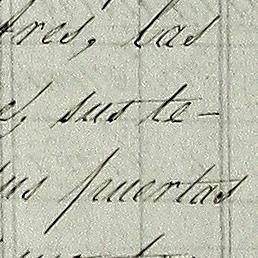 tres, las
e, sus te-
us puertas